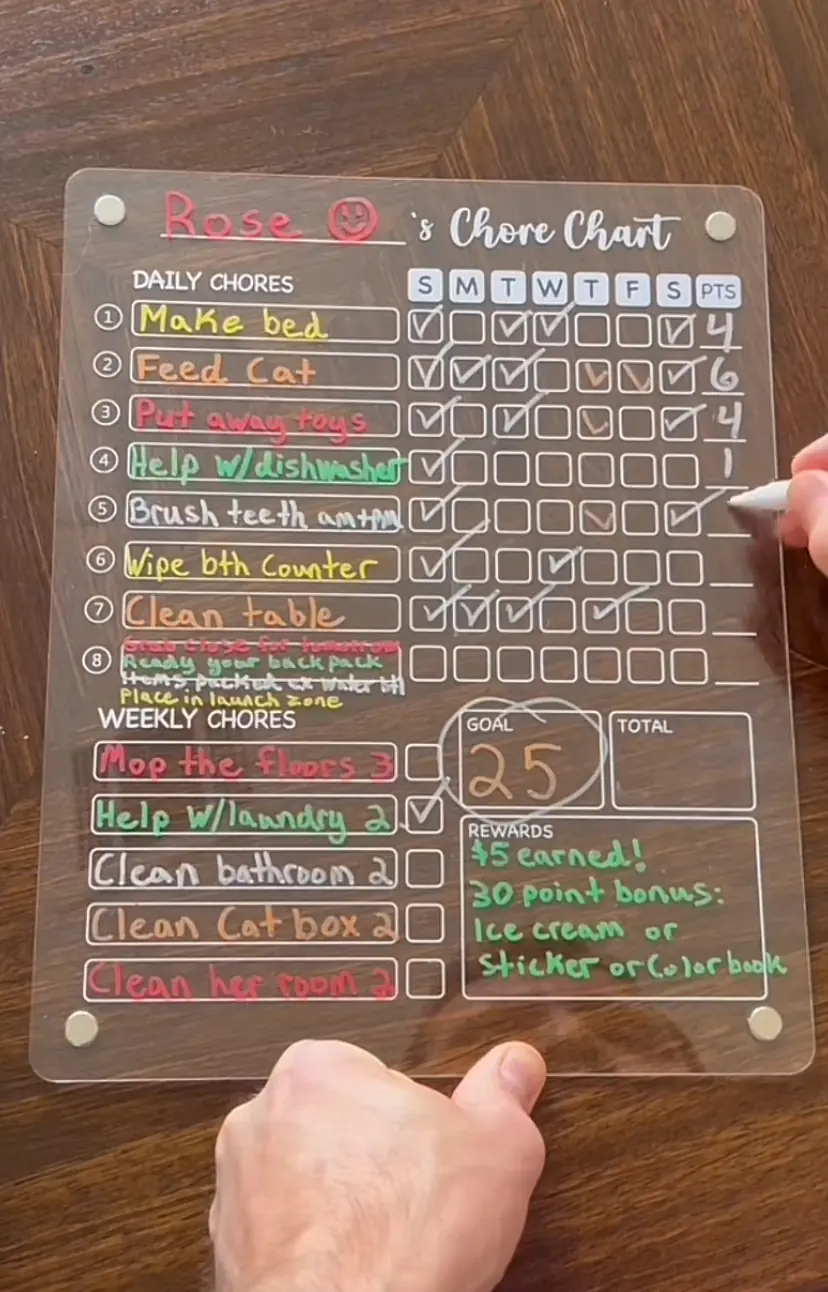 Rose 's Chore Chart
DAILY CHORES S M T W T F S PTS
1 Make bed 4
2 Feed Cat 6
3 Put away toys 4
4 Help w/dishwasher 1
5 Brush teeth am+pm
6 Wipe bth Counter
7 Clean table
Grab close for tomorrow
8 Ready your back pack
Items packed ex water btl
Place in launch zone
WEEKLY CHORES
Mop the floors 3
Help w/laundry 2
Clean bathroom 2
Clean Cat box 2
Clean her room 2
GOAL
25
TOTAL
REWARDS
$5 earned!
30 point bonus:
Ice cream or
sticker or Color book